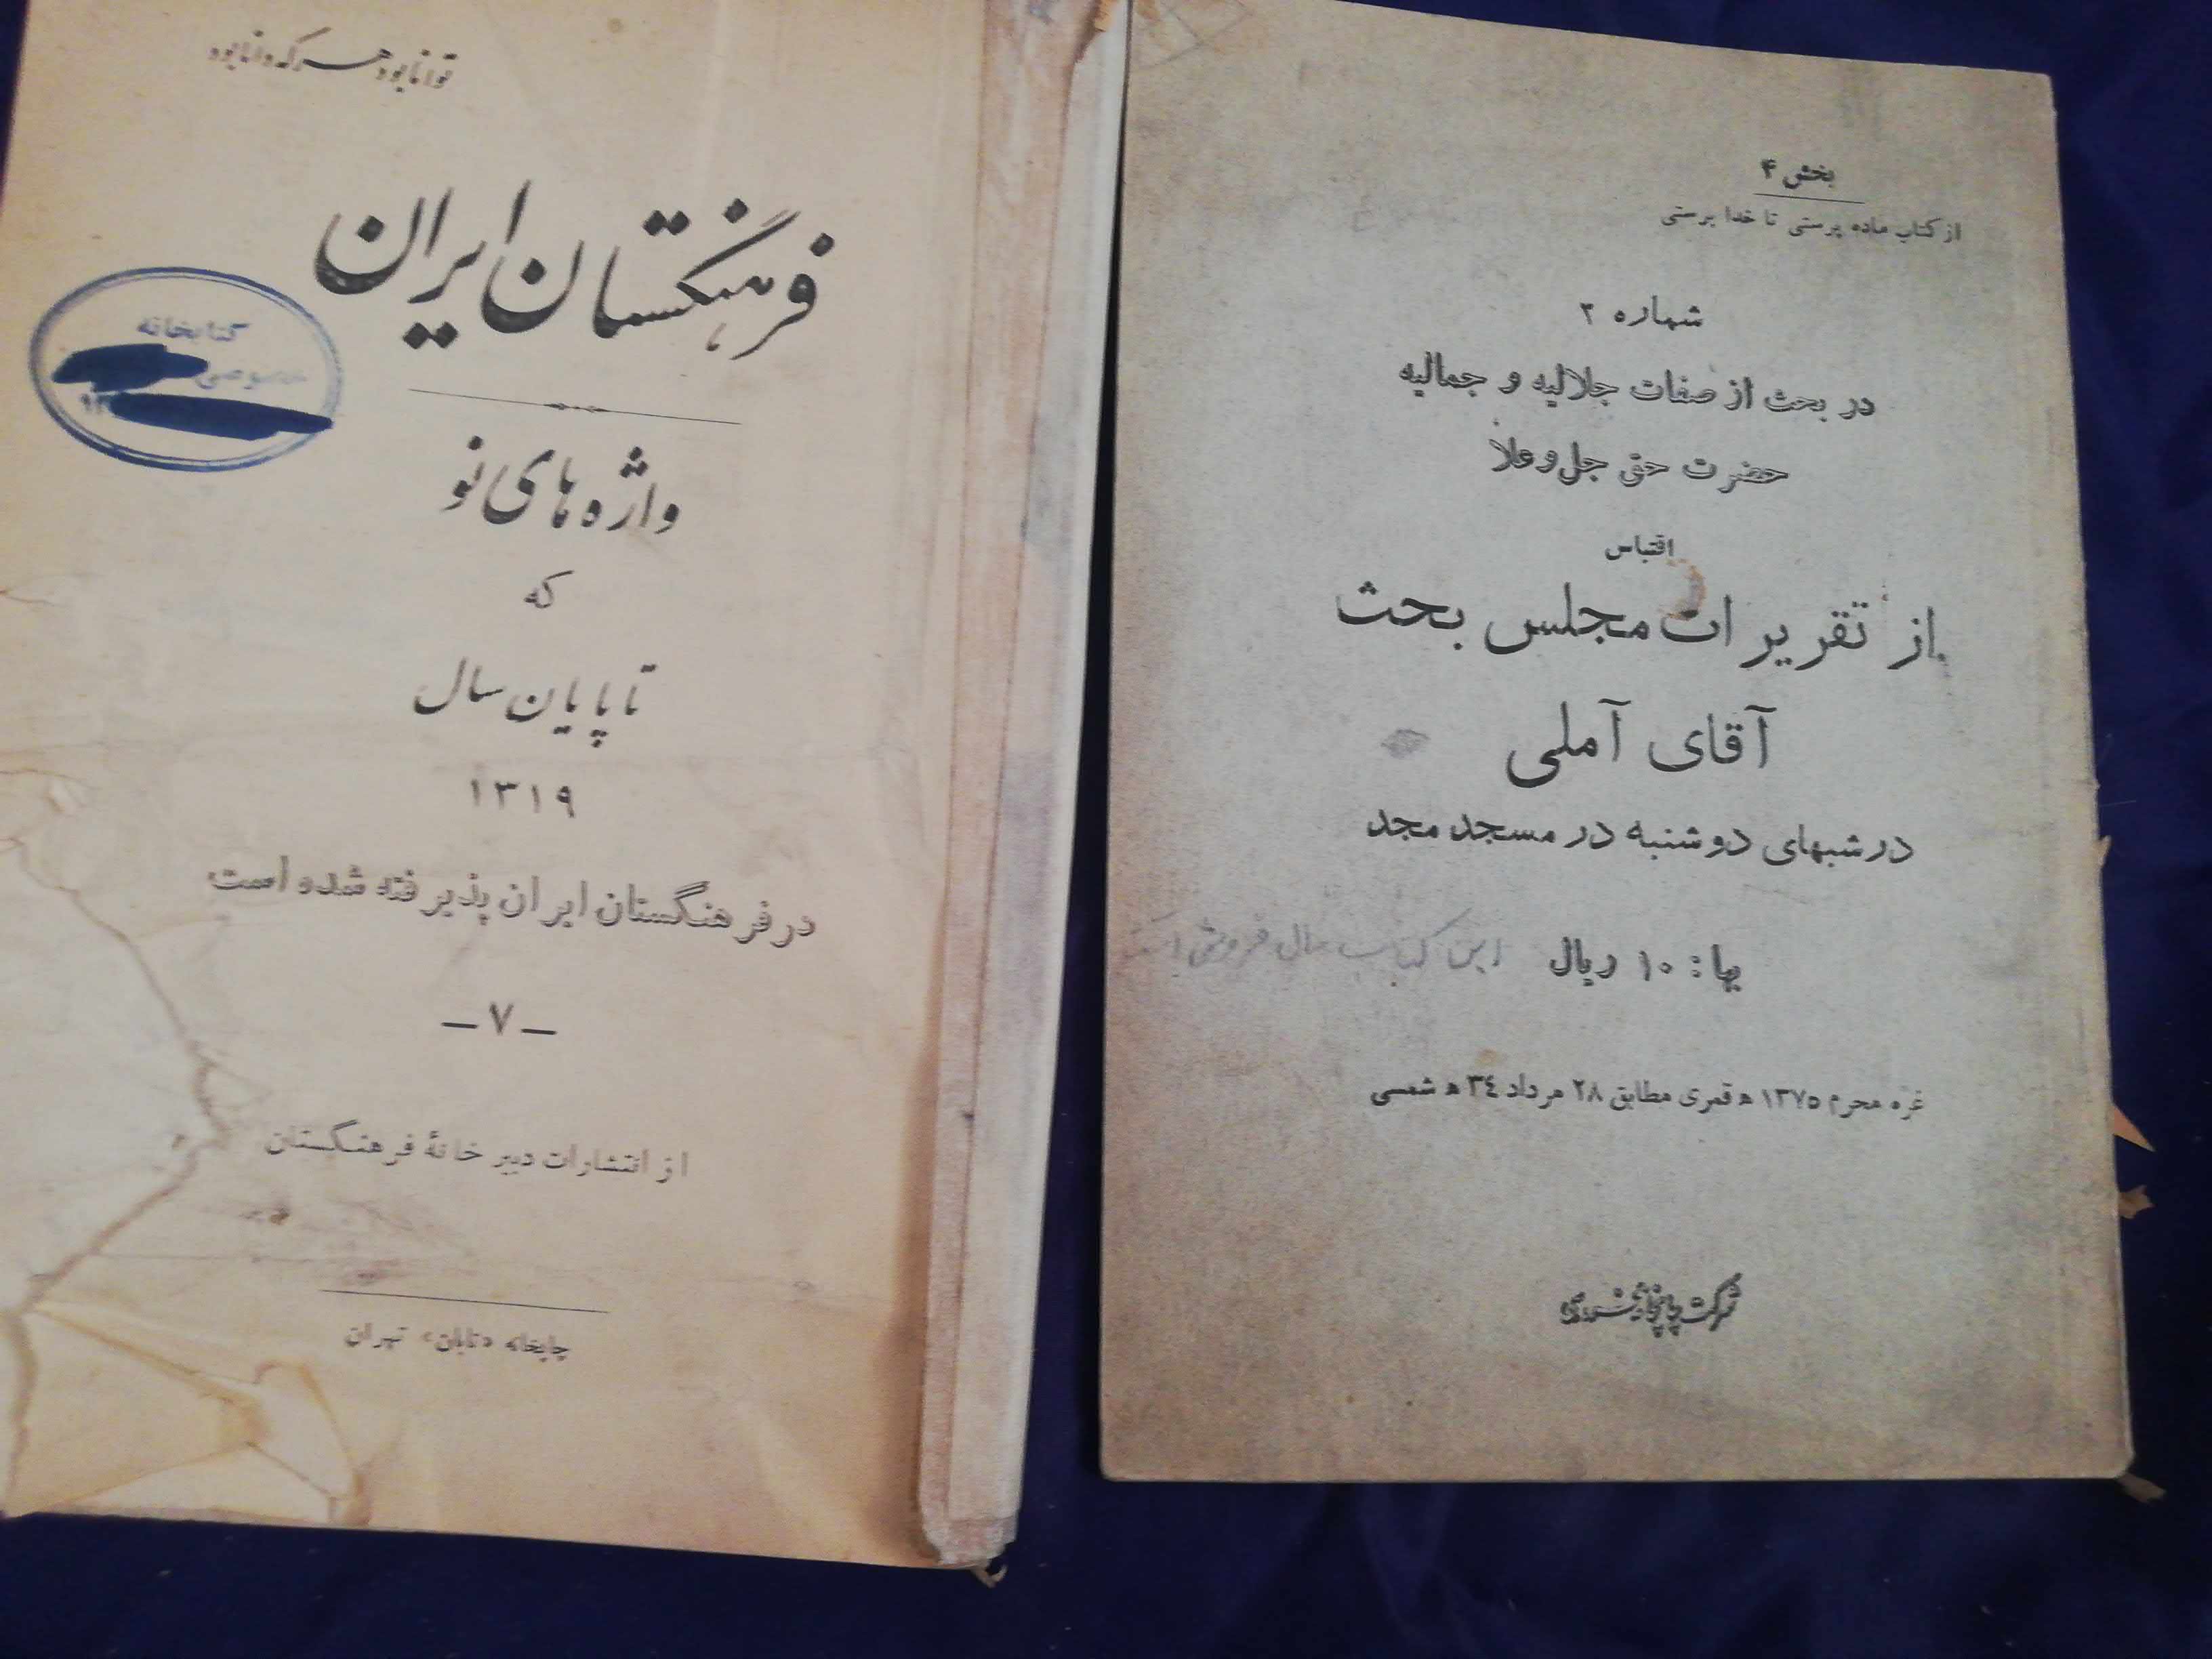 بخش ۴
از کتاب ماده پرستی تا خدا پرستی
شماره ۲
در بحث از صفات جلالیه و جمالیه
حضرت حق جل و علا
اقتباس
از تقریرات مجلس بحث
آقای آملی
در شبهای دوشنبه در مسجد مجد
بها: ۱۰ ریال
این کتاب مال فروش است
غره محرم ۱۳۷۵ ه قمری مطابق ۲۸ مرداد ۳۴ ه شمسی
شرکت چاپخانه
توانا بود هر که دانا بود
فرهنگستان ایران
کتابخانه
خصوصی
واژه های نو
که
تا پایان سال
۱۳۱۹
در فرهنگستان ایران پذیرفته شده است
-۷-
از انتشارات دبیرخانهٔ فرهنگستان
چاپخانه «تابان» تهران